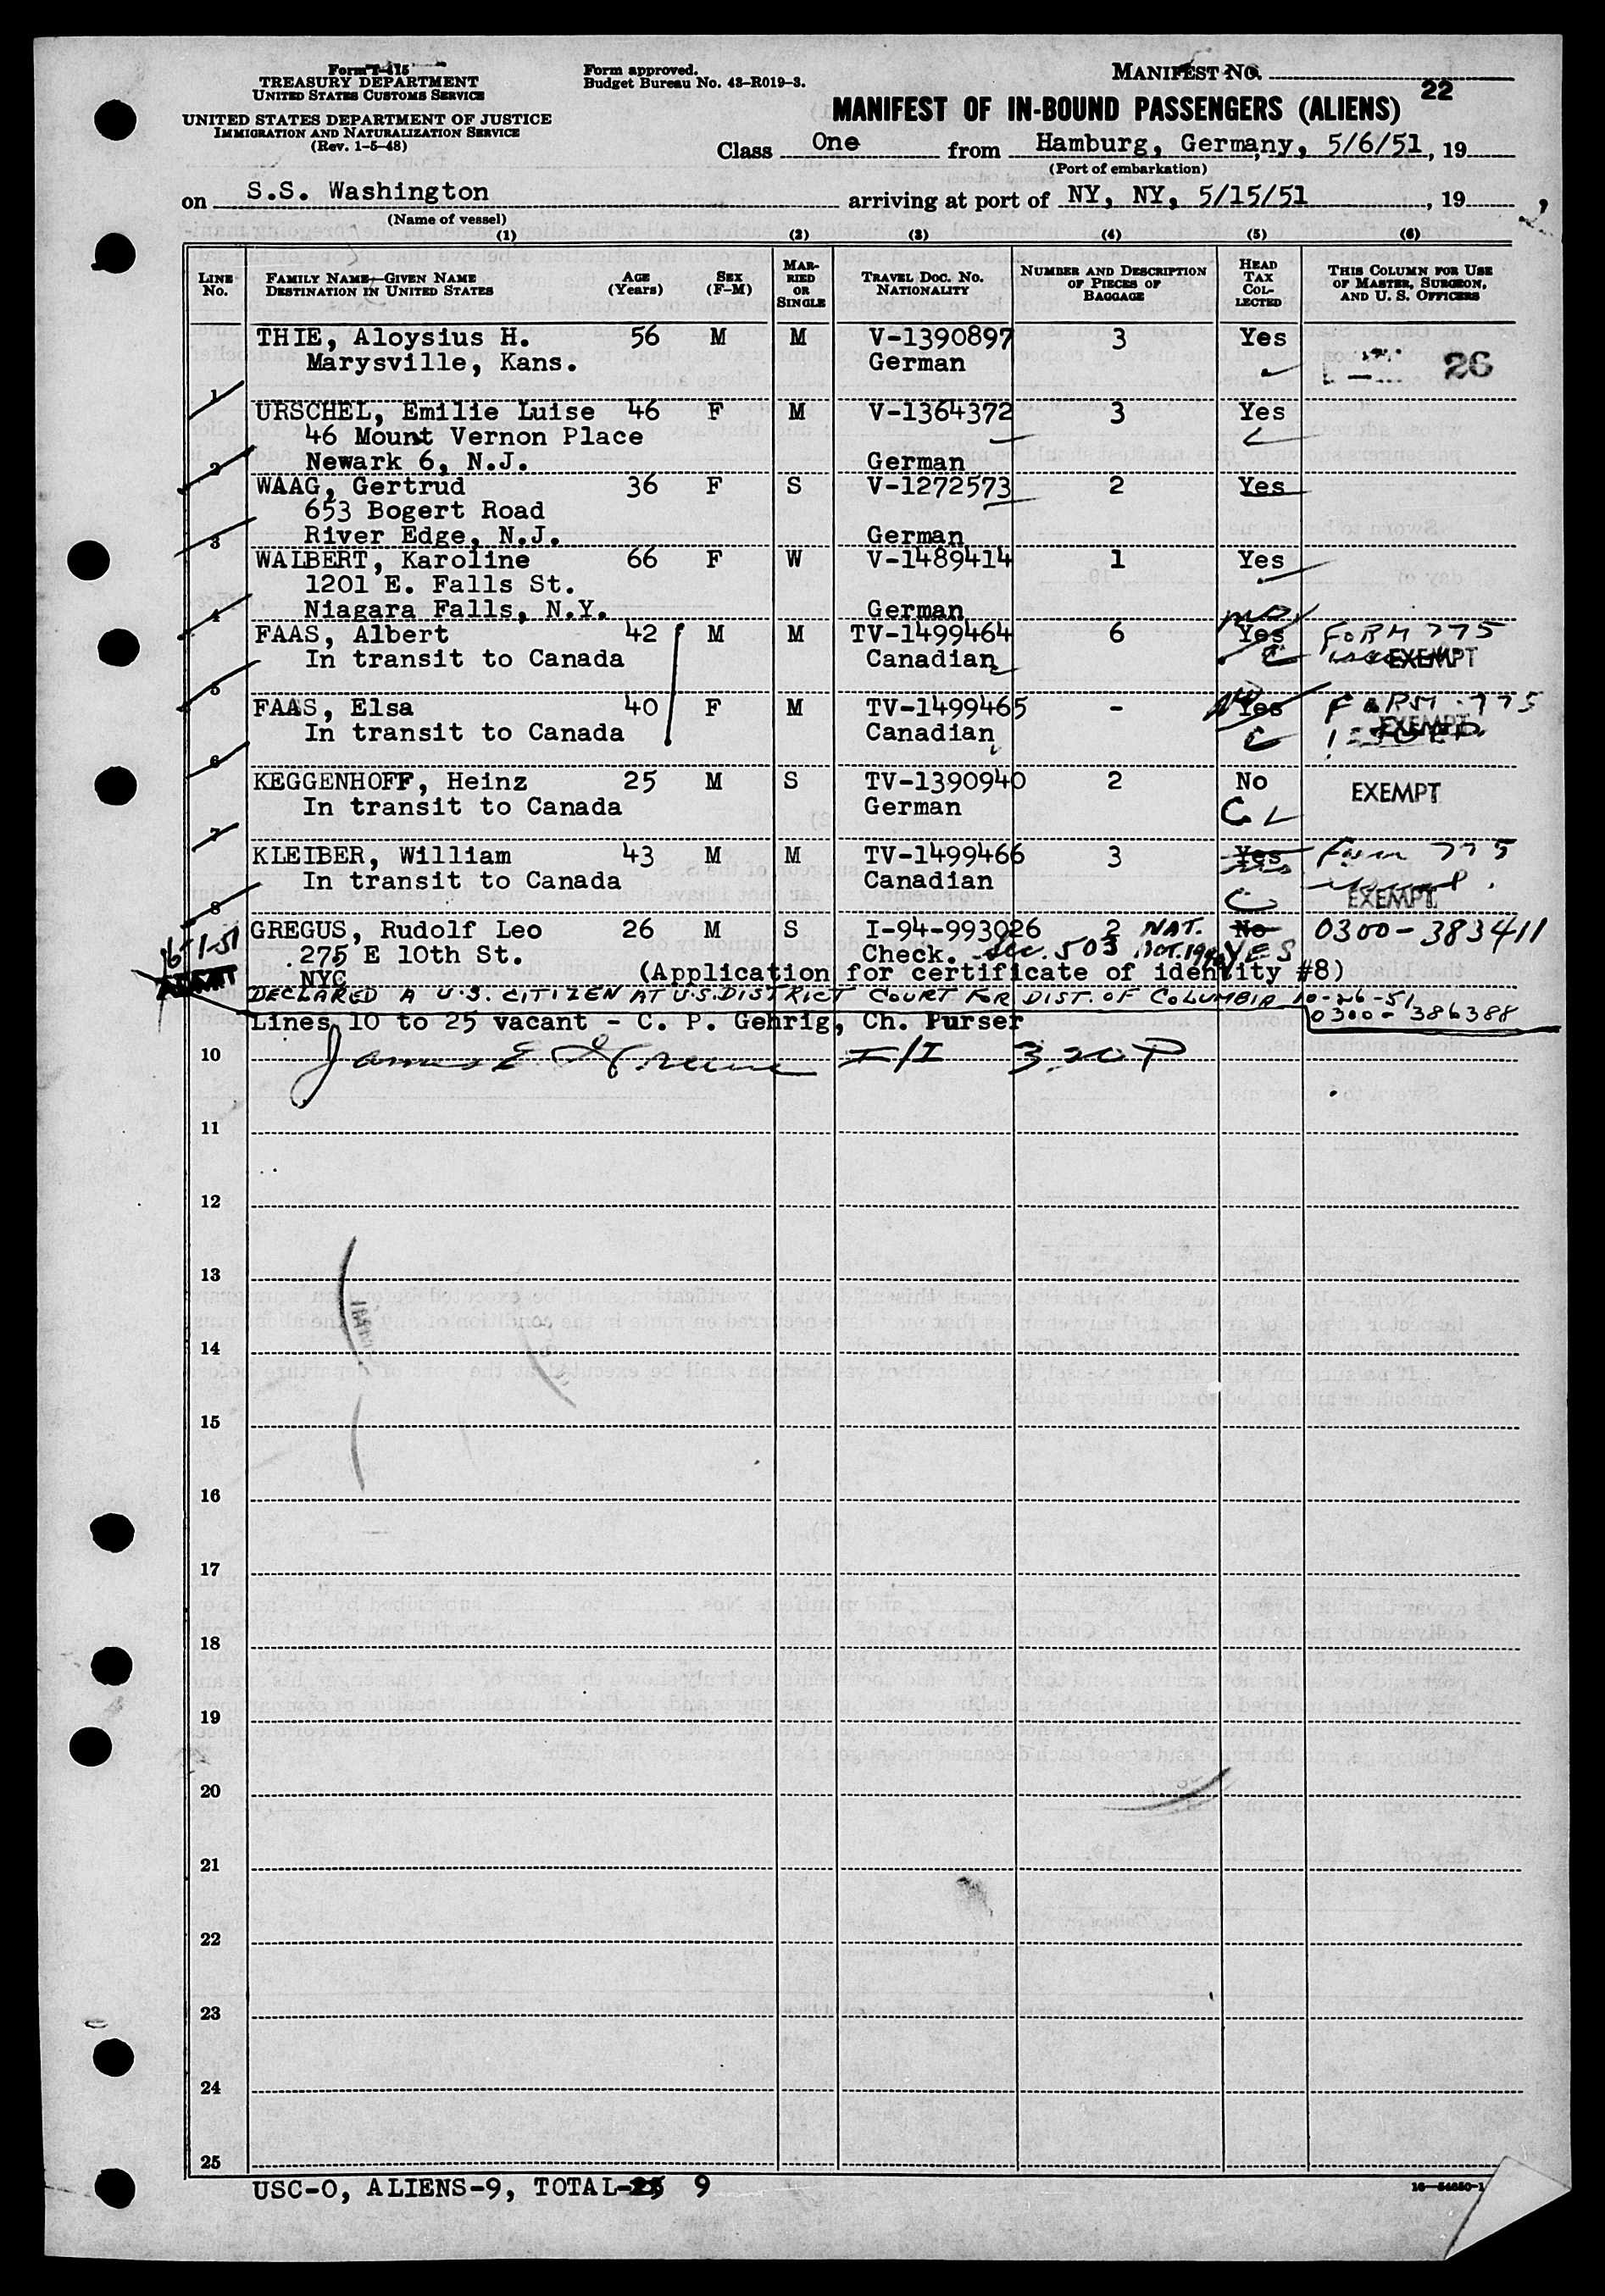 Form I-415
TREASURY DEPARTMENT
UNITED STATES CUSTOMS SERVICE
UNITED STATES DEPARTMENT OF JUSTICE
IMMIGRATION AND NATURALIZATION SERVICE
(Rev. 1-5-48)
Form approved.
Budget Bureau No. 43-R019-3.
MANIFEST NO.
22
MANIFEST OF IN-BOUND PASSENGERS (ALIENS)
Class One from Hamburg, Germany, 5/6/51, 19
(Port of embarkation)
on S.S. Washington arriving at port of NY, NY, 5/15/51, 19
(Name of vessel)
(1) (2) (3) (4) (5) (6)
LINE NO. FAMILY NAME—GIVEN NAME DESTINATION IN UNITED STATES AGE (Years) SEX (F-M) MARRIED OR SINGLE TRAVEL DOC. NO. NATIONALITY NUMBER AND DESCRIPTION OF PIECES OF BAGGAGE HEAD TAX COLLECTED THIS COLUMN FOR USE OF MASTER, SURGEON, AND U. S. OFFICERS
THIE, Aloysius H. 56 M M V-1390897 3 Yes
Marysville, Kans. German 26
1
URSCHEL, Emilie Luise 46 F M V-1364372 3 Yes
46 Mount Vernon Place
2 Newark 6, N.J. German
WAAG, Gertrud 36 F S V-1272573 2 Yes
653 Bogert Road
3 River Edge, N.J. German
WALBERT, Karoline 66 F W V-1489414 1 Yes
1201 E. Falls St.
4 Niagara Falls, N.Y. German
FAAS, Albert 42 M M TV-1499464 6 Yes FORM 775
In transit to Canada Canadian C EXEMPT
5
FAAS, Elsa 40 F M TV-1499465 - Yes FORM 775
In transit to Canada Canadian C ISSUED EXEMPT
6
KEGGENHOFF, Heinz 25 M S TV-1390940 2 No EXEMPT
In transit to Canada German C
7
KLEIBER, William 43 M M TV-1499466 3 Yes Form 775
In transit to Canada Canadian C issued. EXEMPT
8
GREGUS, Rudolf Leo 26 M S I-94-993026 2 NAT. No 0300-383411
6-1-51 275 E 10th St. Check. Sec. 503 ACT. 1940 YES
ADMIT NYC (Application for certificate of identity #8)
DECLARED A U.S. CITIZEN AT U.S. DISTRICT COURT FOR DIST. OF COLUMBIA 10-26-51
0300-386388
Lines 10 to 25 vacant - C. P. Gehrig, Ch. Purser
10 James E I/I 3 20 P
11
12
13
14
15
16
17
18
19
20
21
22
23
24
25
USC-0, ALIENS-9, TOTAL-25 9
16—54650-1